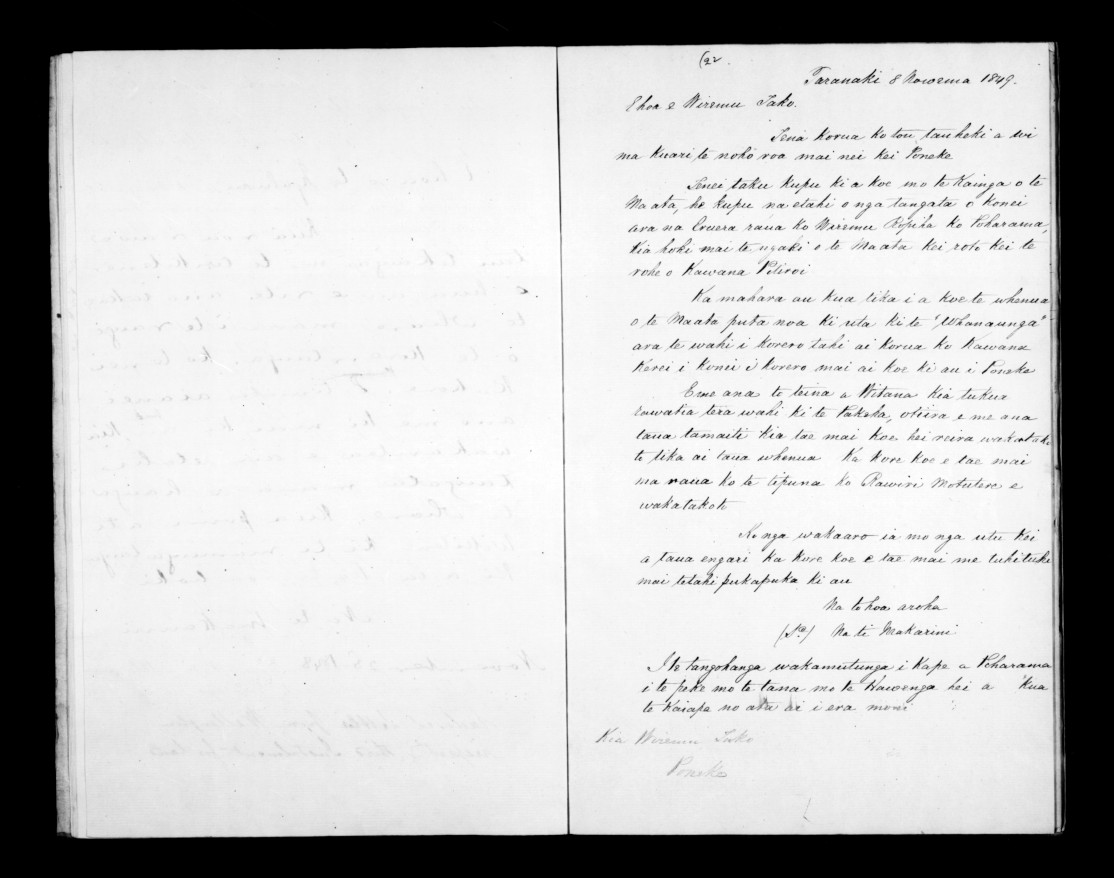 (22.
Taranaki 8 Nowema 1849.
E hoa e Wiremu Tako.
Tena korua ko tou tauheki a wi
ma kuari te noho roa mai nei kei Poneke
Tenei taku kupu ki a koe mo te Kainga o te
Maata, he kupu na etahi o nga tangata o konei
ara na Eruera raua ko Wiremu Ropiha ko Poharama,
kia hoki mai te ngaki o te Maata kei roto kei te
rohe o Kawana Pitiroi
Ka mahara au kua tika i a koe te whenua
o te Maata puta noa ki uta ki te "Whanaunga"
ara te wahi i korero tahi ai korua ko Kawana
Kerei i konei i korero mai ai koe ki au i Poneke
E mea ana to teina a Witana kia tukua
tera wahi ki te Pakeha, otiira e mea ana
taua tamaiti kia tae mai koe hei reira wakatake
te tika ai taua whenua Ka kore koe e tae mai
ma raua ko te tipuna ko Rawiri Motutere e
wakatakoto
Ko nga wakaaro ia mo nga utu kei
a taua engari ka kore koe e tae mai me tuhituhi
mai tetahi pukapuka ki au
Na to hoa aroha
Na te Makarini
I te tangohanga wakamutunga i Kape a Poharama
i te peke mo te tana mo te Hawenga hei a kua
te Karapa no ata ai i era moni
Kia Wiremu Tako
Poneke